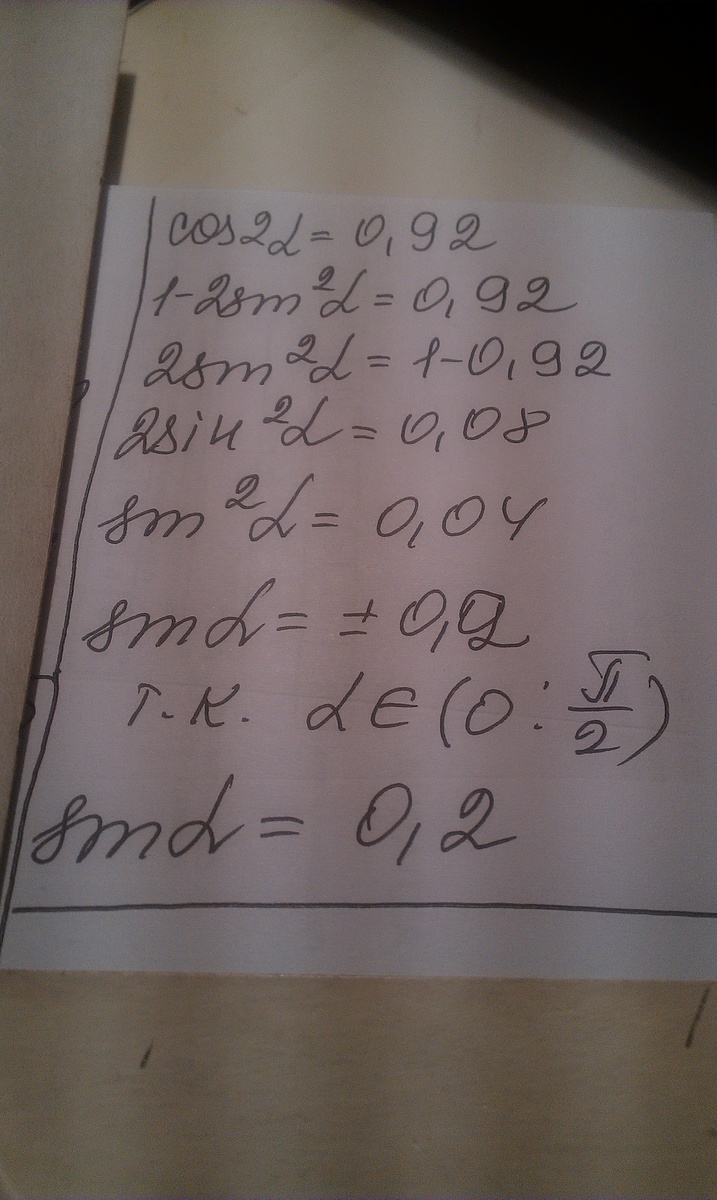 cos2α = 0,92
1-2sin²α = 0,92
2sin²α = 1-0,92
2sin²α = 0,08
sin²α = 0,04
sinα = ± 0,2
т.к. α ∈ (0 ; π/2)
sinα = 0,2